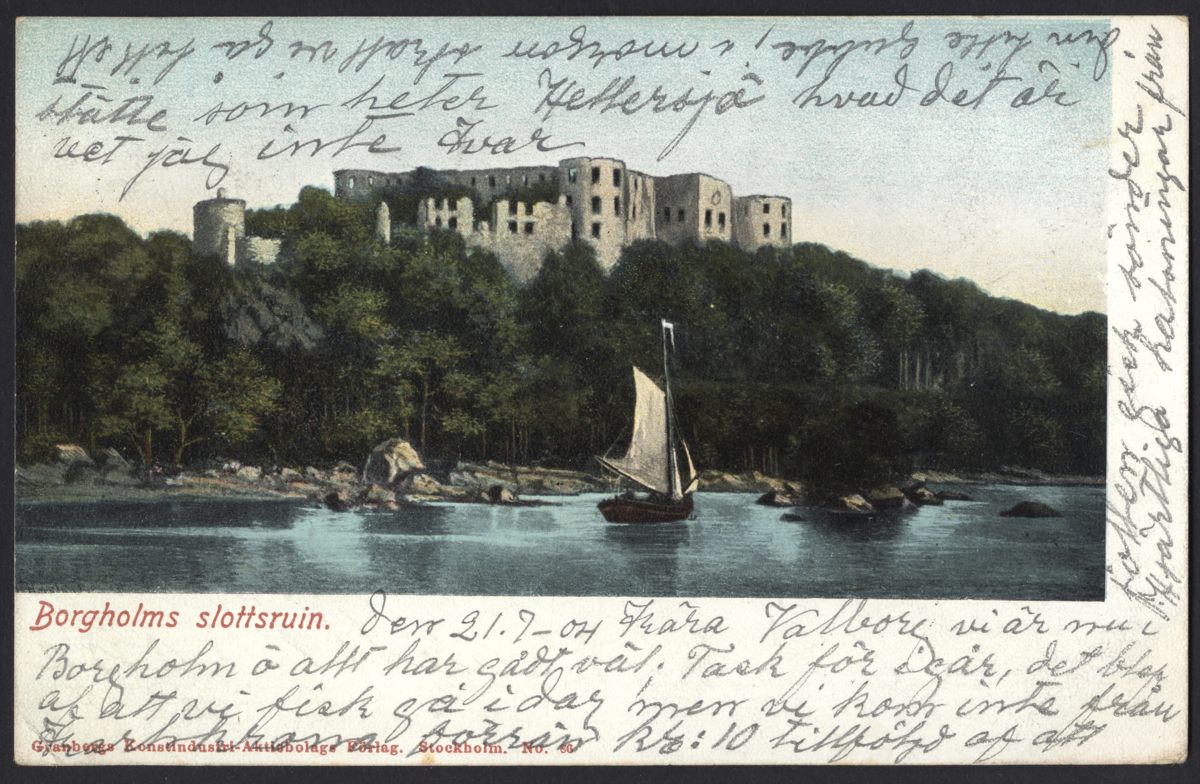 Borgholms slottsruin. Den 21.7-04 Kära Valborg vi är nu i
Borgholm ö allt har gådt väl. Tack för igår, det blev
af att vi fick gå i dag men vi kom inte från
förrän kr: 10 tillföljd af att
Granbergs Konstindustri-Aktiebolags Förlag. Stockholm. No. 66
gick sönder
Hjärtliga hälsningar från
din lille Gubbe, i morgon skall vi gå till ett
ställe som heter Hellersjö hvad det är
vet jag inte Ivar